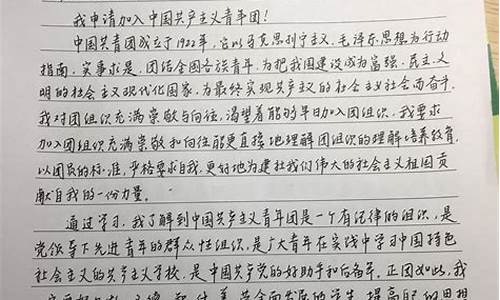 我申请加入中国共产主义青年团！
中国共青团成立于1922年，它以马克思列宁主义、毛泽东思想为行动
指南，实事求是，团结全国各族青年，为把我国建设成为富强、民主、文
明的社会主义现代化国家，为最终实现共产主义的社会主义社会而奋斗。
我对团组织充满崇敬与向往，渴望着能够早日加入团组织。我要求
加入团组织充满崇敬和向往能更直接地理解团组织的理解培养教育，
以团员的标准，严格要求自我，更好地为建设我们伟大的社会主义祖国贡
献自我的一份力量。
通过学习，我了解到中国共产主义青年团是一个有纪律的组织，是
党领导下先进青年的群众性组织，是广大青年在实践中学习中国特色
社会主义的共产主义学校，是中国共产党的好助手和后备军。正因如此，我
提高自己的思想